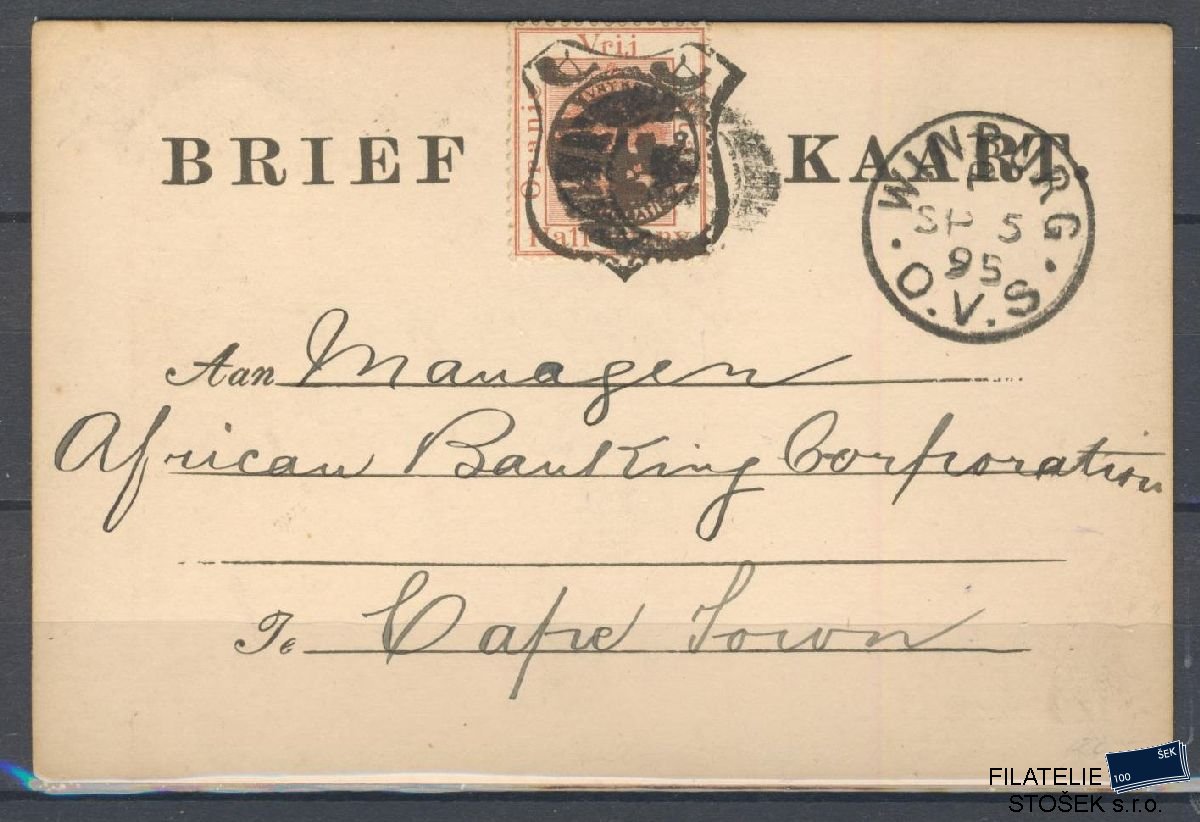 Vrij
Oranje
BRIEF KAART.
Half Penny
WINBURG
SP 5
95
O.V.S
Aan Manager
African Banking Corporation
Te Cape Town
FILATELIE
STOŠEK s.r.o.
100 ŠEK